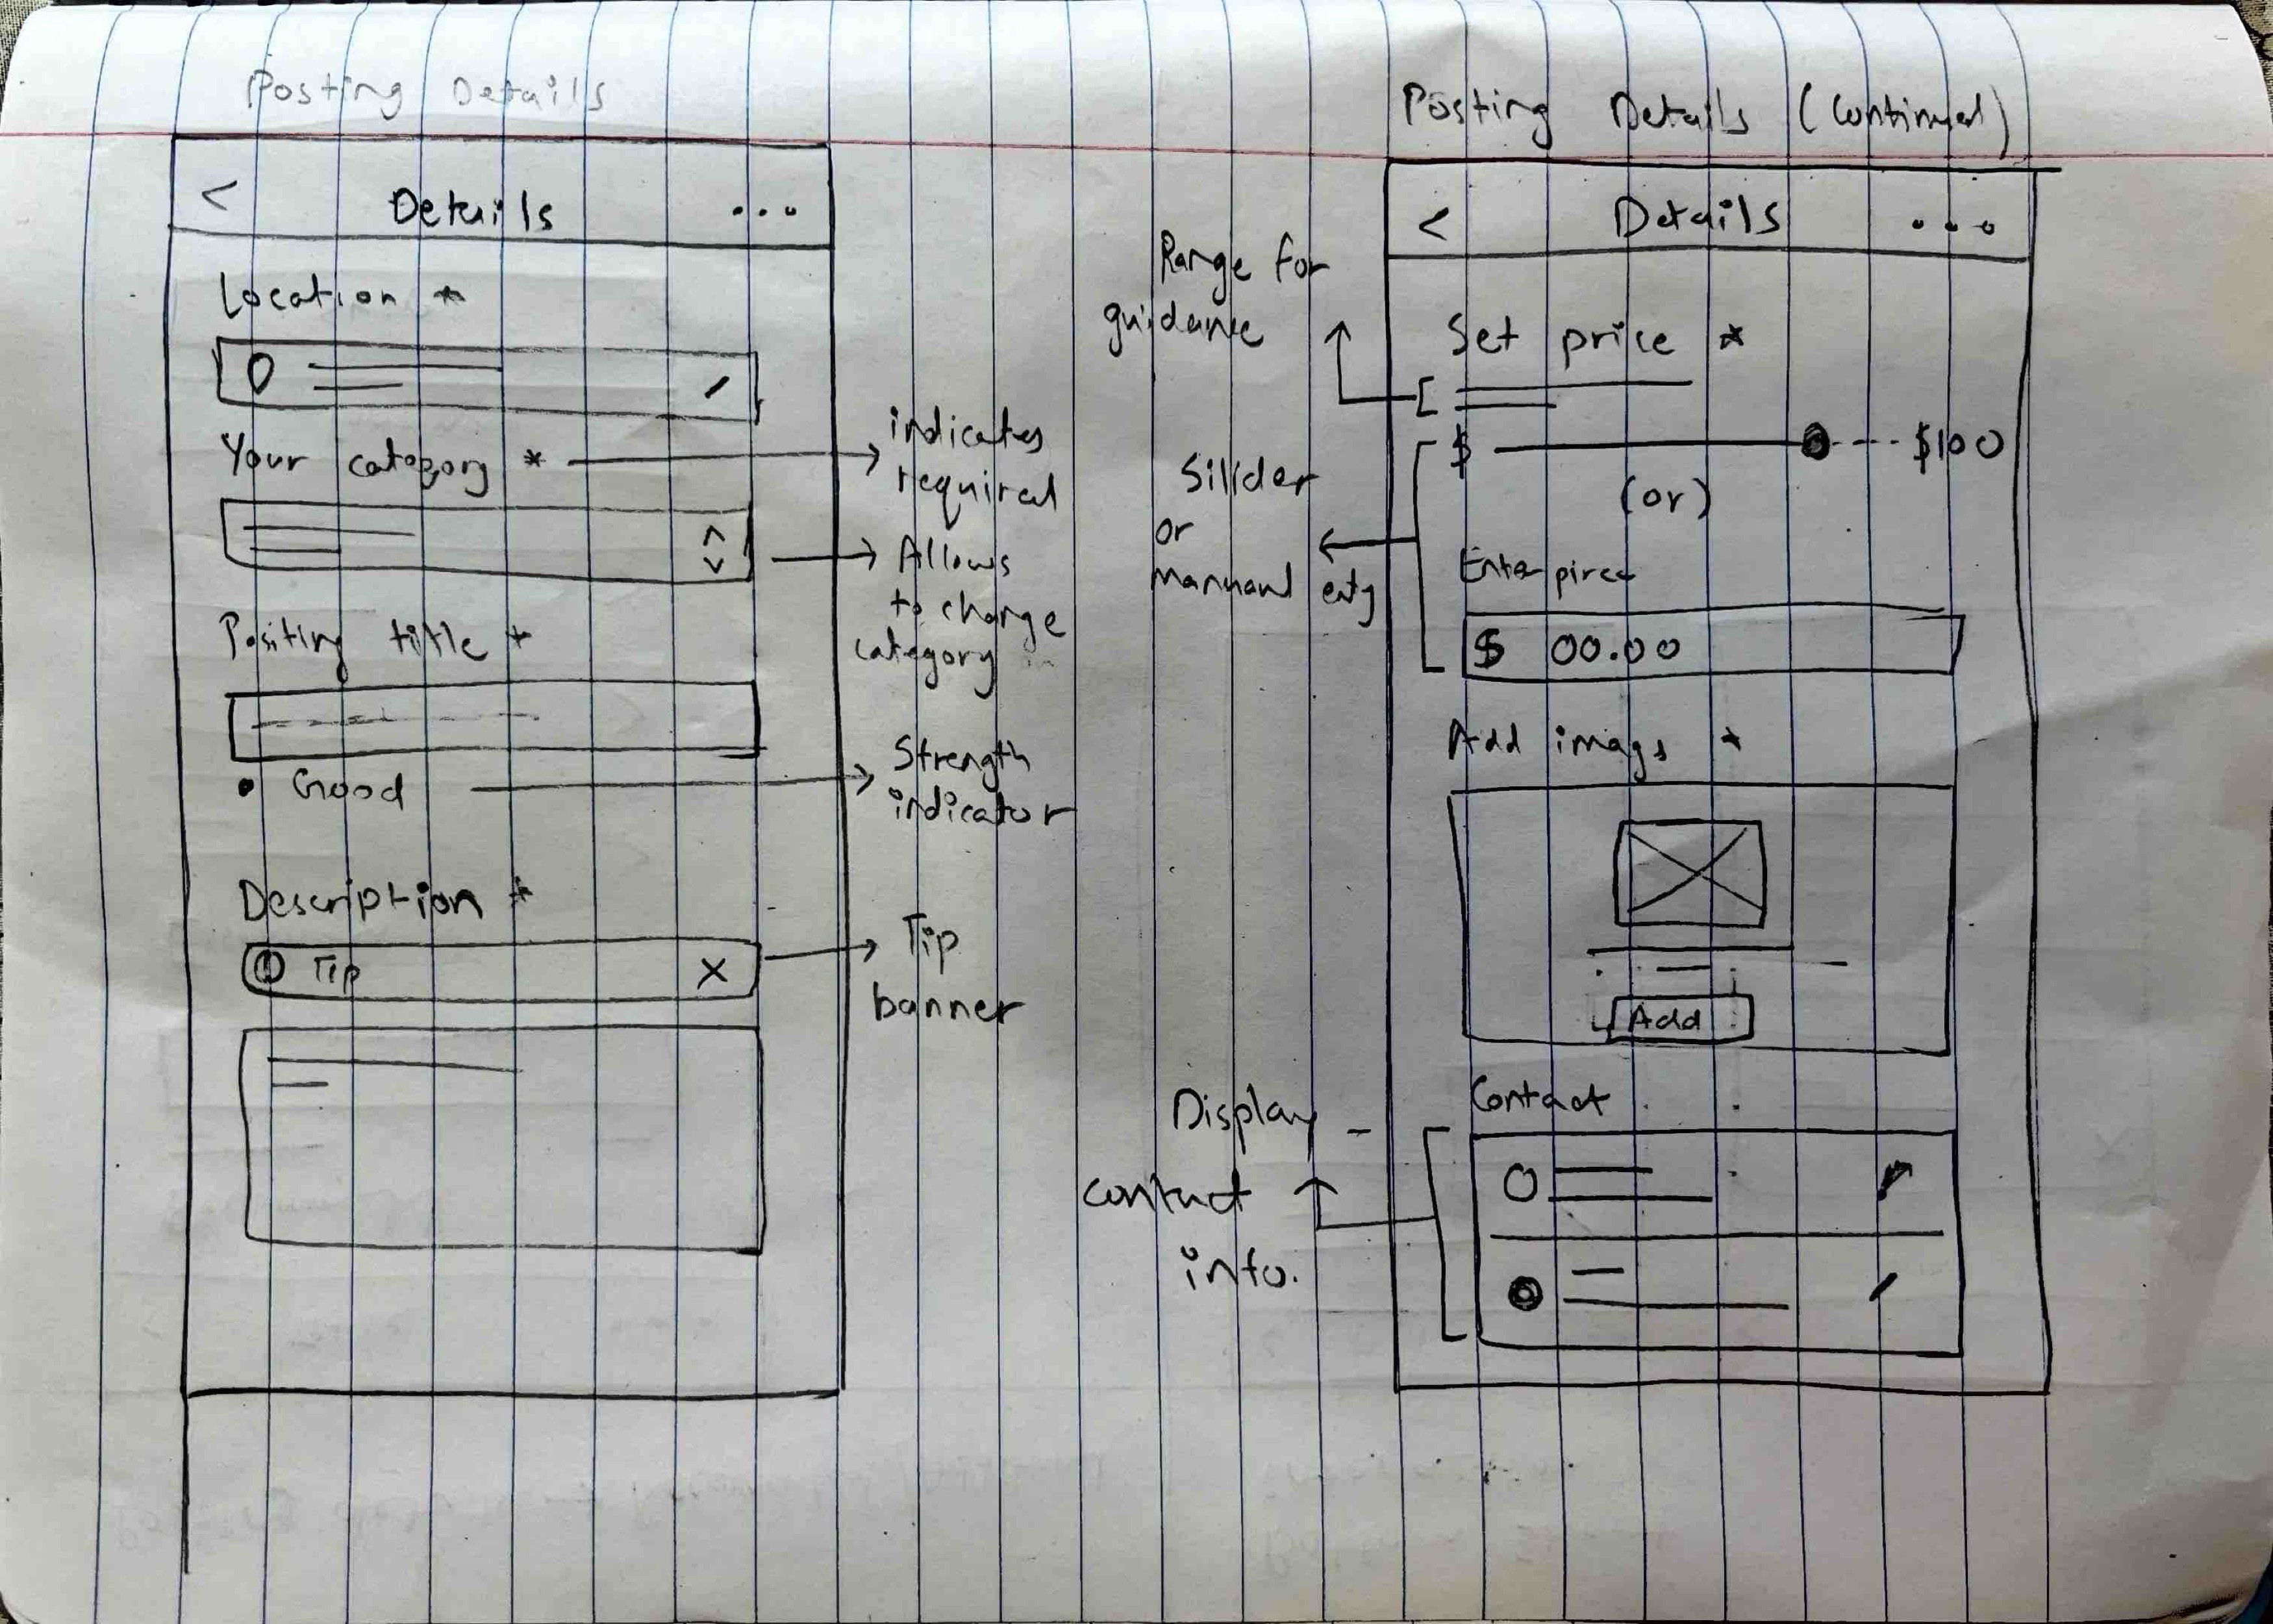 Posting Details
< Details ...
Location *
Your category *
Positing title *
• Good
Description *
Tip X
indicates
required
Allows
to change
category
Strength
indicator
Tip
banner
Posting Details (Continued)
< Details ...
Set price *
$ $100
(or)
Enter pirce
$ 00.00
Add
*
Add
Contact
Range for
guidance
Silider
or
Display
contact
info.